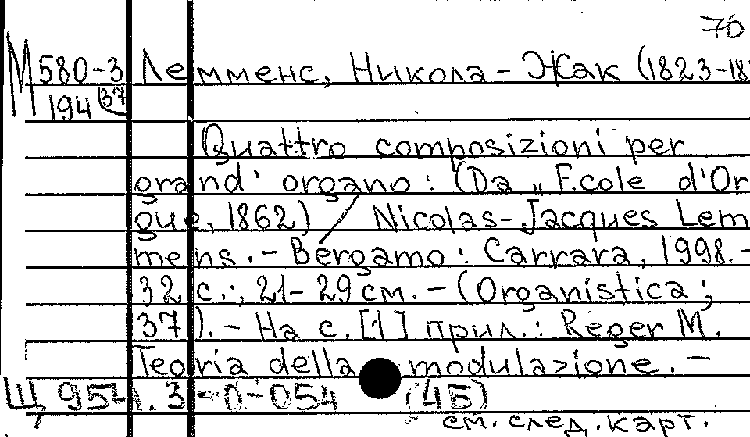 70
М 580-3 Лемменс, Никола-Жак (1823-18
194 (37
Quattro composizioni per
grand' organo : (Da „ F.cole d'Or
gue, 1862) / Nicolas-Jacques Lem
mens. - Bergamo : Carrara, 1998. -
32 с.; 21-29 см. - (Organistica ;
37). - На с. [1] прил.: Reger M.
Teoria della modulazione. -
Щ 954.3-0-054 (45)
см. след. карт.